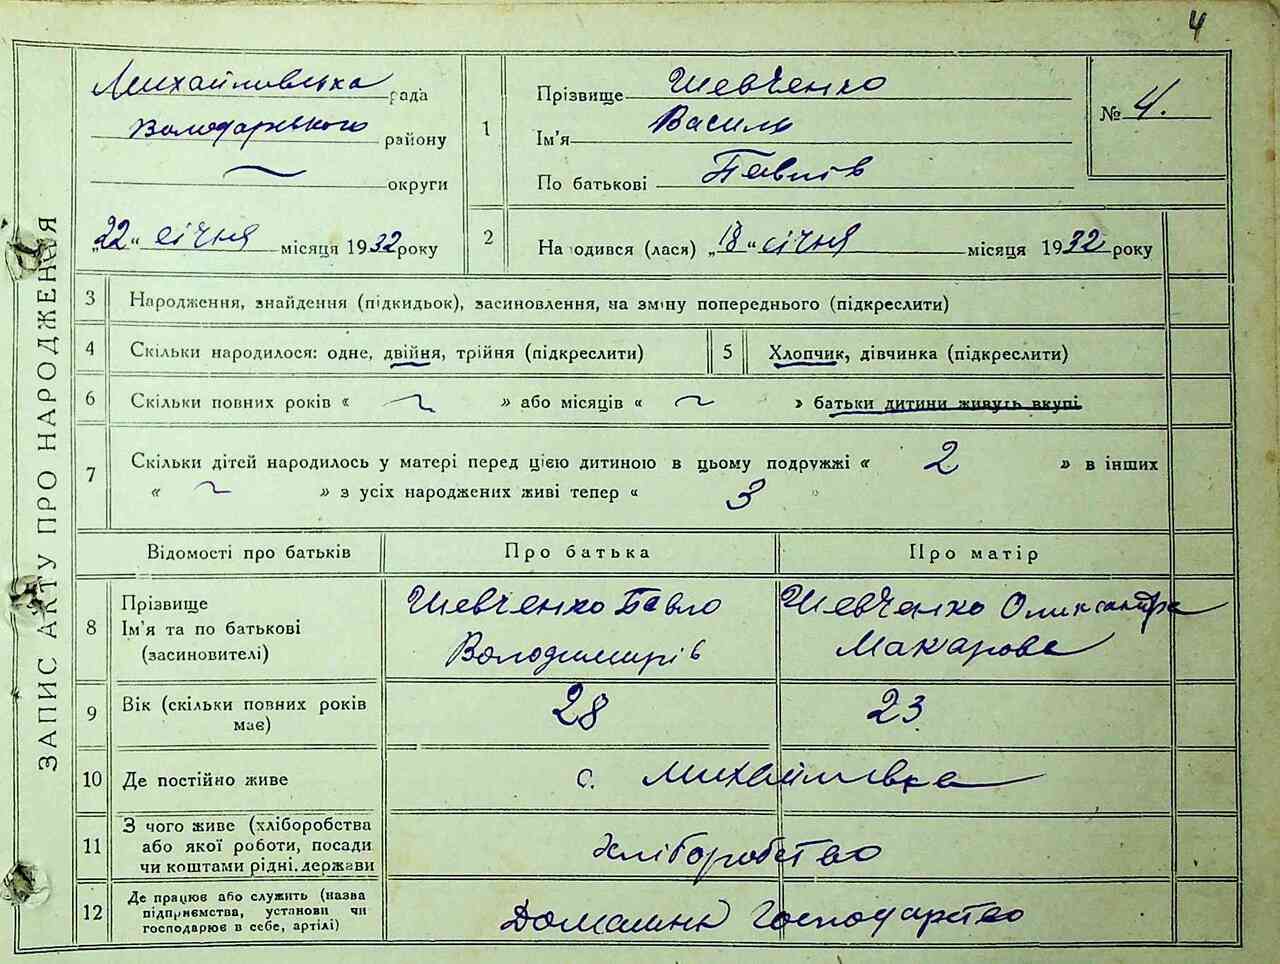 4
ЗАПИС АКТУ ПРО НАРОДЖЕННЯ
Михайловська рада
Володарського району
округи
„22“ січня місяця 1932 року
1
Прізвище Шевченко
Ім'я Василь
По батькові Павлів
№ 4.
2
Народився (лася) „18“ січня місяця 1932 року
3 Народження, знайдення (підкидьок), засиновлення, на зміну попереднього (підкреслити)
4 Скільки народилося: одне, двійня, трійня (підкреслити)
5 Хлопчик, дівчинка (підкреслити)
6 Скільки повних років « ~ » або місяців « ~ » батьки дитини живуть вкупі
7 Скільки дітей народилось у матері перед цією дитиною в цьому подружжі « 2 » в інших
« ~ » з усіх народжених живі тепер « 3 »
Відомості про батьків Про батька Про матір
8
Прізвище
Ім'я та по батькові
(засиновителі)
Шевченко Павло
Володимирів
Шевченко Олександра
Макарова
9 Вік (скільки повних років
має)
28 23
10 Де постійно живе с. Михайлівка
11 З чого живе (хліборобства
або якої роботи, посади
чи коштами рідні, держави
хліборобство
12 Де працює або служить (назва
підприємства, установи чи
господарює в себе, артілі)
Домашнє господарство